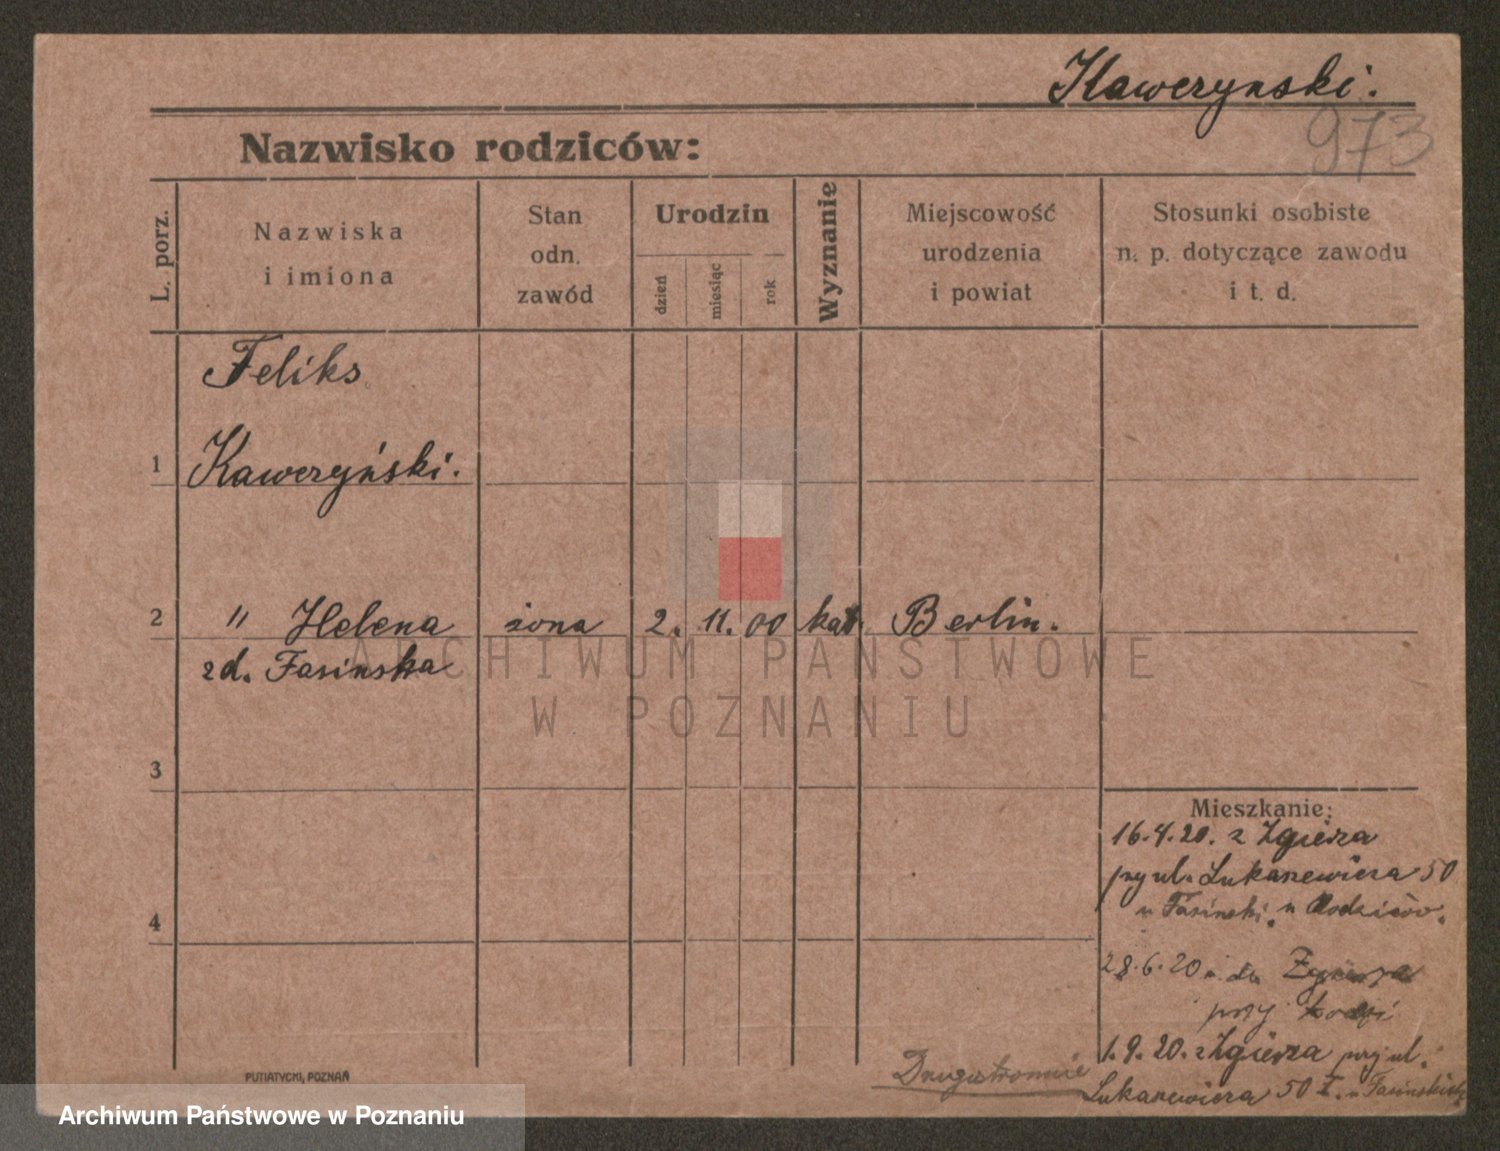 Kawerynski.
973
Nazwisko rodziców:
L. porz.
Nazwiska
i imiona
Stan
odn.
zawód
Urodzin
dzień
miesiąc
rok
Wyznanie
Miejscowość
urodzenia
i powiat
Stosunki osobiste
n. p. dotyczące zawodu
i t. d.
Feliks
1 Kaweryński.
2 " Helena żona 2. 11. 00 kat. Berlin.
zd. Fasinska
3
Mieszkanie:
16.4.20. z Zgierza
przy ul. Lukaszewicza 50
u Fasinski. u Rodziców.
4
28.6.20 do Zgierza
przy Łodzi
1.9.20. z Zgierza przy ul.
Drugostronnie
Lukaszewicza 50 I. u Fasinskich
PUTIATYCKI, POZNAŃ
ARCHIWUM PAŃSTWOWE
W POZNANIU
Archiwum Państwowe w Poznaniu